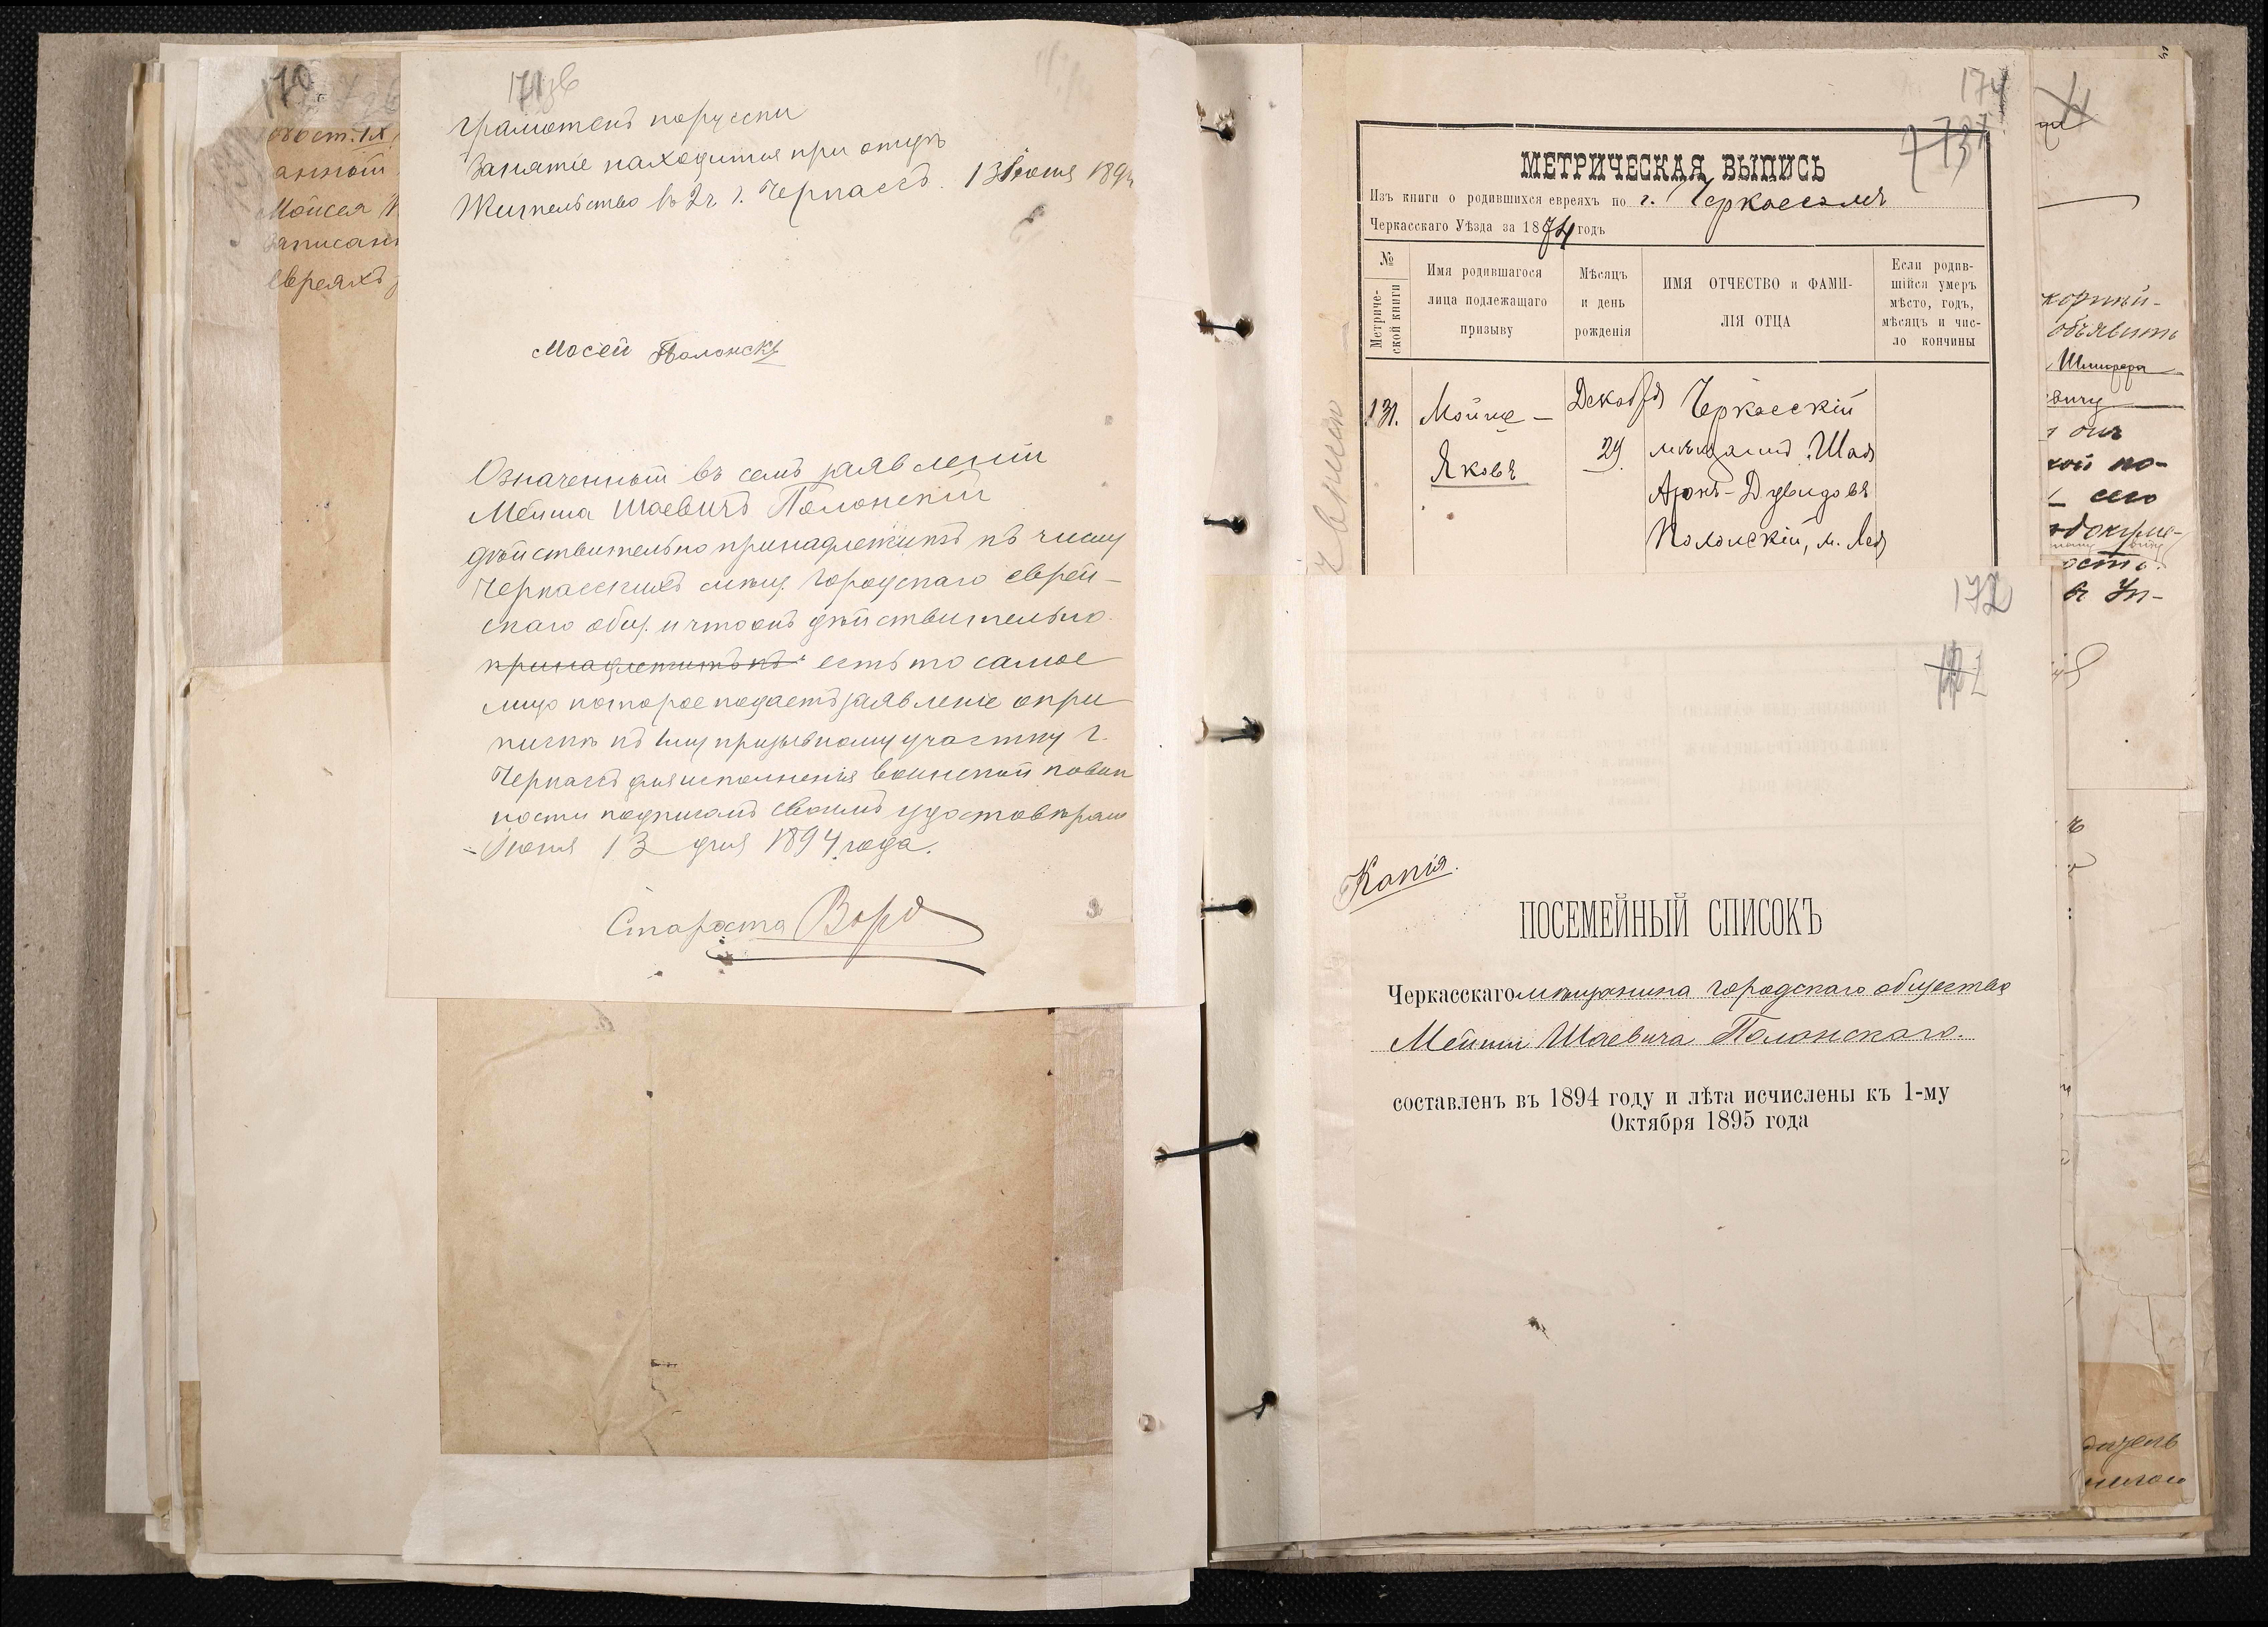 170
обост. IX
анной
Мойсея
Записан
Евреяхъ
171 об
Грамотенъ порусски
Занятие находится при отцѣ
Жительство въ 2 ч г. Черкассъ. 13 Июня 1894
Мосей Полонскъ
Означенный въ семъ заявленіи
Мейша Шаевичъ Полонскій
дѣйствительно принадлежитъ къ числу
Черкасскихъ мѣщ. городскаго еврей-
скаго общ. и что онъ дѣйствительно
принадлежитъ къ есть то самое
лицо которое подаетъ заявленіе о при
пискѣ къ 1му призывному участку г.
Черкассъ для исполненія воинской повин
ности подписомъ своимъ удостовѣряю
Июня 13 дня 1894 года.
Староста
174
МЕТРИЧЕСКАЯ ВЫПИСЬ
Изъ книги о родившихся евреяхъ по г. Черкассамъ
Черкасскаго Уѣзда за 1874 годъ
№ Метриче-
ской книги
Имя родившагося
лица подлежащаго
призыву
Мѣсяцъ
и день
рожденія
ИМЯ ОТЧЕСТВО и ФАМИ-
ЛІЯ ОТЦА
Если родив-
шійся умеръ
мѣсто, годъ,
мѣсяцъ и чис-
ло кончины
131. Мойше - Декабря Черкасскій
Яковъ 29 мѣщанинъ Шая
Аронъ-Дувидовъ
Полонскій, м. Лея
172
Копія.
ПОСЕМЕЙНЫЙ СПИСОКЪ
Черкасскаго мѣщанина городскаго общества
Мейши Шаевича Полонскаго.
составленъ въ 1894 году и лѣта исчислены къ 1-му
Октября 1895 года
объявить
Шмирера
вичу
кой по-
сего
ость.
въ Уп-